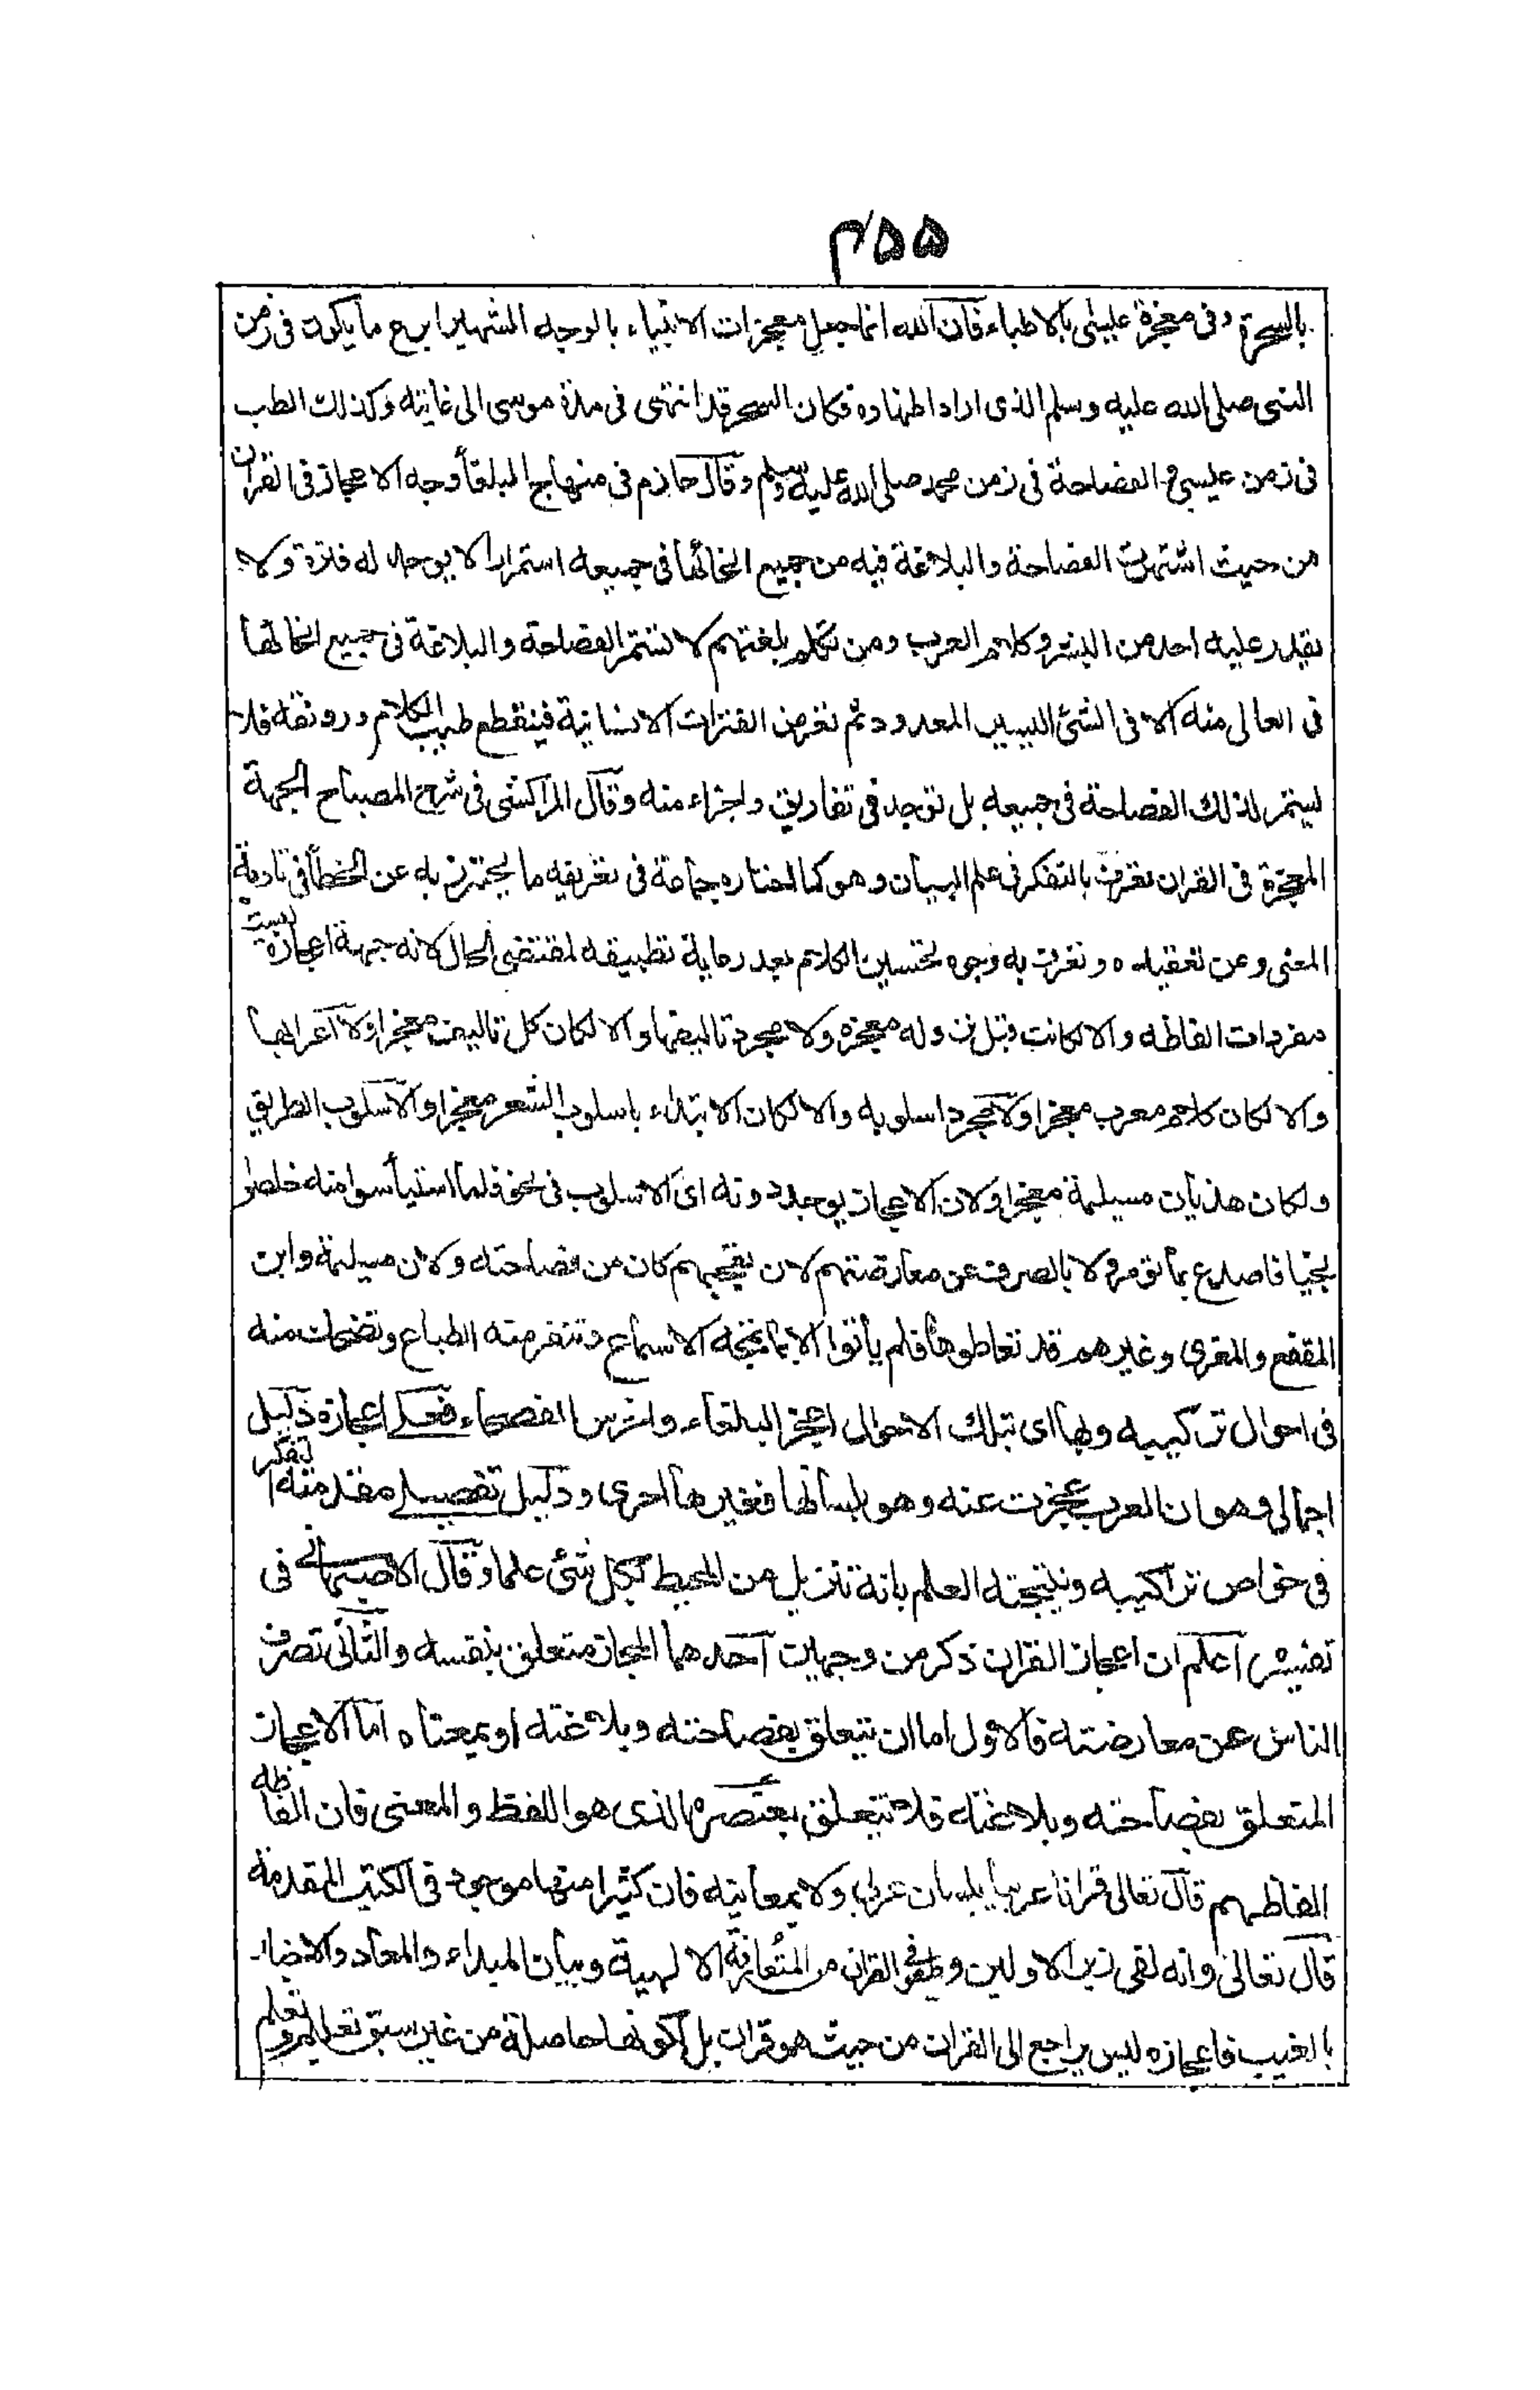 ۴۵۵
بالسحرة وفى معجزة عيسى بالاطباء فان الله انما جعل معجزات الانبياء بالوجه الشهير ابرع ما يكون فى زمن
النبى صلى الله عليه وسلم الذى اراد اظهاره فكان السحر قد انتهى فى مدة موسى الى غايته وكذلك الطب
فى زمن عيسى و الفصاحة فى زمن محمد صلى الله عليه وسلم وقال حازم فى منهاج البلغاء وجه الاعجاز فى القران
من حيث اشتهرت الفصاحة والبلاغة فيه من جميع انحائها فى جميعه استمرارا لا يوجد له فترة ولا
يقدر عليه احد من البشر وكلام العرب ومن تكلم بلغتهم لا تستمر الفصاحة والبلاغة فى جميع انحائها
فى العالى منه الا فى الشئ اليسير المعدود ثم تعرض الفترات الانسانية فينقطع طيب الكلام ورونقه فلا
تستمر لذلك الفصاحة فى جميعه بل توجد فى تفاريق واجزاء منه وقال المراكشى فى شرح المصباح الجهة
المعجزة فى القران تعرف بالتفكر فى علم البيان وهو كما اختاره جماعة فى تعريفه ما يحترز به عن الخطأ فى تادية
المعنى وعن تعقيده وتعرف به وجوه تحسين الكلام بعد رعاية تطبيقه لمقتضى الحال لانه جهة اعجازه ليست
مفردات الفاظه والا لكانت قبل نزوله معجزه ولا مجرد تاليفها والا لكان كل تاليف معجزا ولا اعرابها
والا لكان كلام معرب معجزا ولا مجرد اسلوبه والا لكان الابتداء باسلوب الشعر معجزا والاسلوب الطريق
ولكان هذيان مسيلمة معجزا ولان الاعجاز يوجد دونه اى الاسلوب فى نحو فلما استيأسوا منه خلصوا
نجيا فاصدع بما تؤمر ولا بالصرف عن معارضتهم لان تعجبهم كان من فصاحته ولان مسيلمة وابن
المقفع والمعرى وغيرهم قد تعاطوها فلم يأتوا الا بما تمجه الاسماع وتنفر منه الطباع وتضحك منه
فى احوال تركيبه وبها اى بتلك الاحوال اعجز البلغاء واخرس الفصحاء فعلى اعجازه دليل
اجمالى وهو ان العرب عجزت عنه وهو بلسانها فغيرها احرى ودليل تفصيلى مقدمته التفكر
فى خواص تراكيبه ونتيجته العلم بانه تنزيل من المحيط بكل شئ علما وقال الاصبهانى فى
تفسيره اعلم ان اعجاز القران ذكر من وجهين احدهما اعجاز متعلق بنفسه والثانى تصرف
الناس عن معارضته فالاول اما ان يتعلق بفصاحته وبلاغته او بمعناه اما الاعجاز
المتعلق بفصاحته وبلاغته فلا يتعلق بعنصره الذى هو اللفظ والمعنى فان الفاظه
الفاظهم قال تعالى قرانا عربيا بلسان عربى ولا بمعانيه فان كثيرا منها موجود فى الكتب المقدمة
قال تعالى وانه لفى زبر الاولين وما هو فى القران من المتعارفة الالهية وبيان المبداء والمعاد والاخبار
بالغيب فاعجازه ليس براجع الى القران من حيث هو قران بل لكونها حاصلة من غير سبق تعليم وتعلم